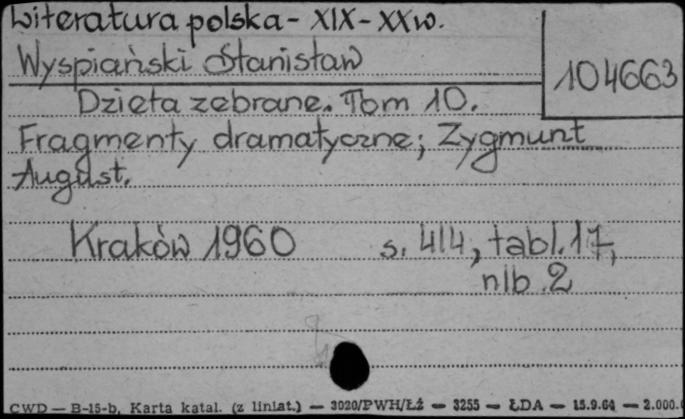 Literatura polska - XIX - XX w.
Wyspiański Stanisław
104663
Dzieła zebrane. Tom 10.
Fragmenty dramatyczne; Zygmunt
August.
Kraków 1960 s. 414, tabl. 17,
nlb. 2
CWD — B-15-b, Karta katal. (z liniat.) — 3020/PWH/Łź — 3255 — ŁDA — 15.9.64 — 2.000.